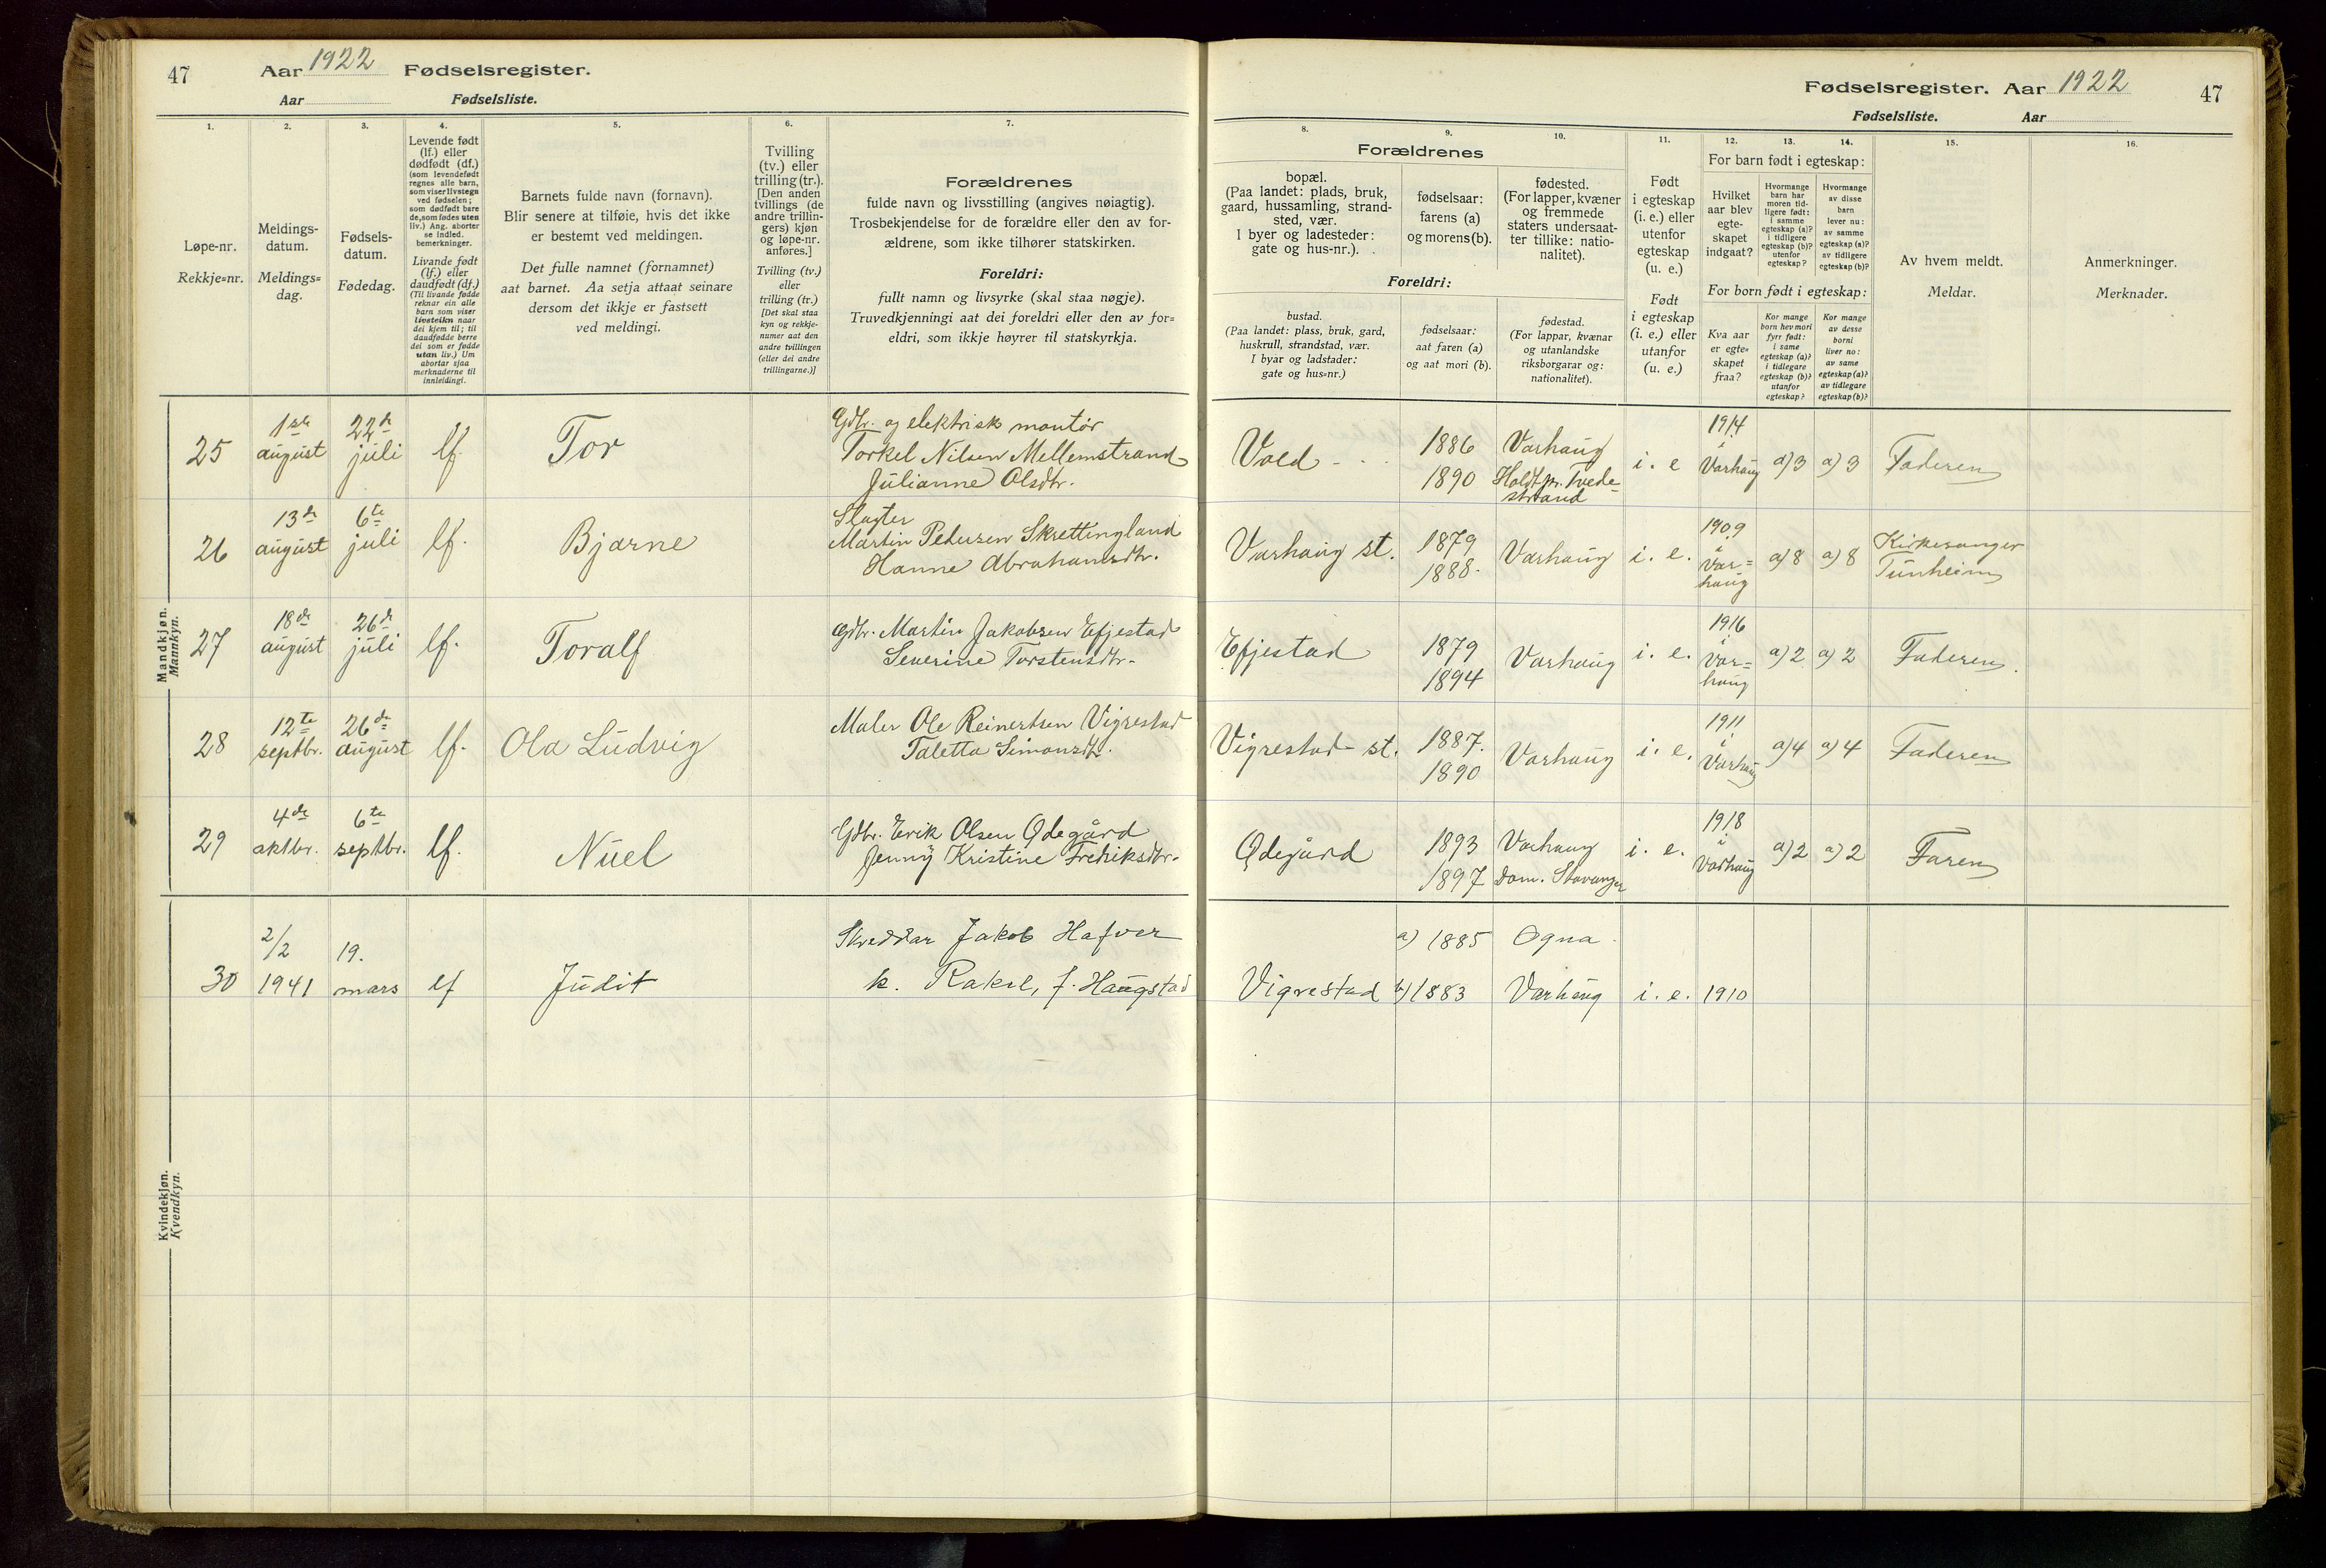 47 Aar 1922 Fødselsregister.
Aar Fødselsliste.
1.
2.
3.
4.
5.
6.
7.
Løpe-nr.
Rekkje=nr.
Meldings-
datum.
Meldings=
dag.
Fødsels-
datum.
Fødedag.
Levende født
(lf.) eller
dødfødt (df.)
(som levendefødt
regnes alle barn,
som viser livstegn
ved fødselen;
som dødfødt bare
de, som fødes uten
liv.) Ang. aborter
se indled.
bemerkninger.
Livande født
(lf.) eller
daudfødt (df.)
(Til livande fødde
reknar ein alle
barn som viser
livsteikn naar
dei kjem til; til
daudfødde berre
dei som er fødde
utan liv.) Um
abortar sjaa
merknaderne til
innleidingi.
Barnets fulde navn (fornavn).
Blir senere at tilføie, hvis det ikke
er bestemt ved meldingen.
Det fulle namnet (fornamnet)
aat barnet. Aa setja attaat seinare
dersom det ikkje er fastsett
ved meldingi.
Tvilling
(tv.) eller
trilling (tr.).
[Den anden
tvillings (de
andre trillin-
gers) kjøn
og løpe-nr.
anføres.]
Tvilling (tv.)
eller
trilling (tr.)
[Det skal staa
kyn og rekkje-
numer aat den
andre tvillingen
(eller dei andre
trillingarne.)]
Forældrenes
fulde navn og livsstilling (angives nøiagtig).
Trosbekjendelse for de forældre eller den av for-
ældrene, som ikke tilhører statskirken.
Foreldri:
fullt namn og livsyrke (skal staa nøgje).
Truvedkjenningi aat dei foreldri eller den av for=
eldri, som ikkje høyrer til statskyrkja.
Mandkjøn.
Mannkyn.
25 1ste august 22de juli lf. Tor
Gdbr. og elektrisk montør
Torkel Nilsen Mellemstrand
Julianne Olsdtr.
26 13de august 6te juli lf. Bjarne
Slagter
Martin Pedersen Skrettingland
Hanne Abrahamsdtr.
27 18de august 26de juli lf. Toralf
Gdbr. Martin Jakobsen Efjestad
Severine Torstensdtr.
28 12te septbr. 26de august lf. Ola Ludvig
Maler Ole Reinertsen Vigrestad
Taletta Simonsdtr.
29 4de oktbr. 6te septbr. lf. Nuel
Gdbr. Erik Olsen Ødegård
Jenny Kristine Fredriksdtr.
Kvindekjøn.
Kvendkyn.
30 2/2 1941 19. mars lf Judit
Skreddar Jakob Hafver
k. Rakel, f. Haugstad
Fødselsregister. Aar 1922 47
Fødselsliste. Aar
8.
9.
10.
11.
12.
13.
14.
15.
16.
Forældrenes
bopæl.
(Paa landet: plads, bruk,
gaard, hussamling, strand-
sted, vær.
I byer og ladesteder:
gate og hus-nr.).
fødselsaar:
farens (a)
og morens (b).
fødested.
(For lapper, kvæner
og fremmede
staters undersaat-
ter tillike: natio-
nalitet).
Foreldri:
bustad.
(Paa landet: plass, bruk, gard,
huskrull, strandstad, vær.
I byar og ladstader:
gate og hus=nr.)
fødselsaar:
aat faren (a)
og aat mori (b).
fødestad.
(For lappar, kvænar
og utanlandske
riksborgarar og:
nationalitet).
Født
i egteskap
(i. e.) eller
utenfor
egteskap
(u. e.)
Født
i egteskap
(i. e.) eller
utanfor
(u. e.)
For barn født i egteskap:
Hvilket
aar blev
egte-
skapet
indgaat?
Hvormange
barn har
moren tid-
ligere født:
i samme
egteskap (a)?
i tidligere
egteskap (b)?
utenfor
egteskap?
Hvormange
av disse
barn
lever nu:
av samme
egteskap (a)?
av tidligere
egteskap (b)?
For born født i egteskap:
Kva aar
er egte=
skapet
fraa?
Kor mange
born hev mori
fyrr født:
i same
egteskap (a)?
i tidlegare
egteskap (b)?
utanfor
egteskap?
Kor mange
av desse
borni
liver no:
av same
egteskap (a)?
av tidlegare
egteskap (b)?
Av hvem meldt.
Meldar.
Anmerkninger.
Merknader.
Vold 1886 Varhaug
1890 Holdt pr. Tvede-
strand
i. e 1914 i Varhaug a) 3 a) 3 Faderen
Varhaug st. 1879 1888. Varhaug i. e. 1909 i Var=
haug a) 8 a) 8 Kirkesanger
Tunheim
Efjestad 1879 1894 Varhaug i. e. 1916 i Var=
haug a) 2 a) 2 Faderen.
Vigrestad st. 1887. 1890 Varhaug i. e. 1911 i Varhaug a) 4 a) 4 Faderen
Ødegård 1893 Varhaug
1897 Dom. Stavanger
i. e. 1918 i Varhaug a) 2 a) 2 Faren
a) 1885 Ogna
Vigrestad b) 1883 Varhaug i. e. 1910